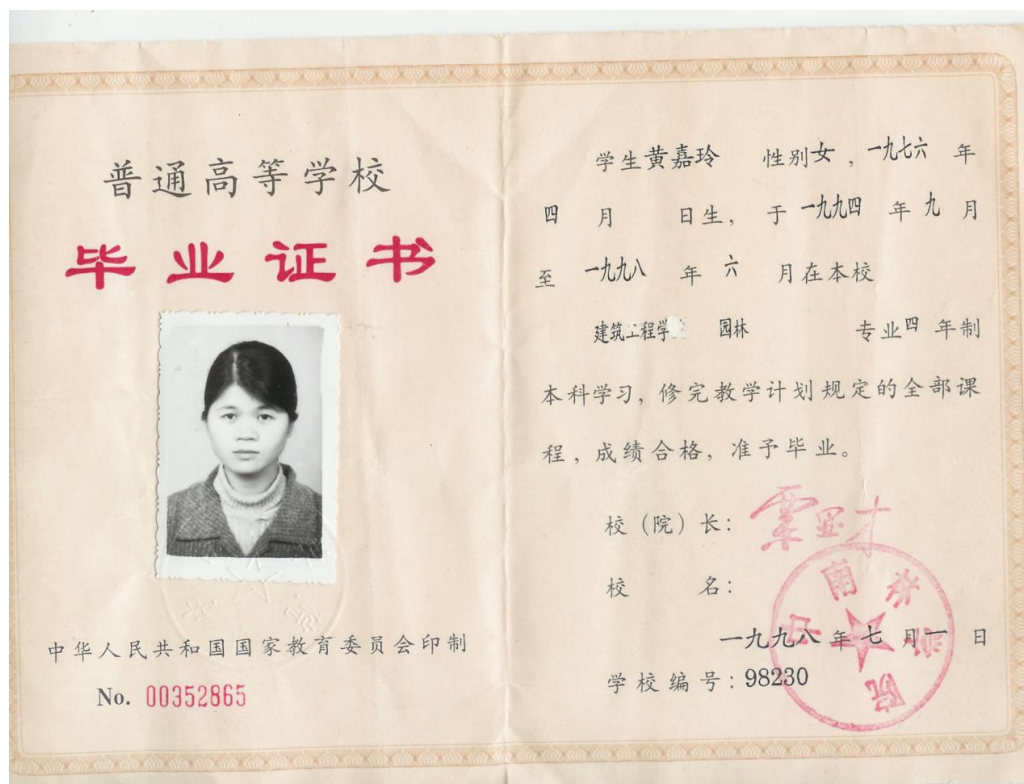 普通高等学校
毕业证书
中华人民共和国国家教育委员会印制
No. 00352865
学生黄嘉玲 性别女，一九七六 年
四 月 日生，于 一九九四 年 九 月
至 一九九八 年 六 月在本校
建筑工程学 园林 专业四 年制
本科学习，修完教学计划规定的全部课
程，成绩合格，准予毕业。
校（院）长：
校 名：
中南林学院
一九九八 年 七 月 一 日
学校编号：98230